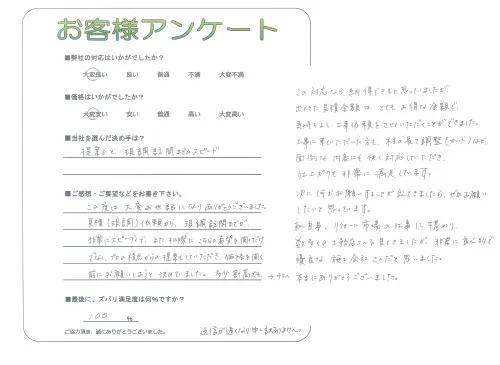 お客様アンケート
■弊社の対応はいかがでしたか？
大変良い 良い 普通 不満 大変不満
■価格はいかがでしたか？
大変安い 安い 普通 高い 大変高い
■当社を選んだ決め手は？
提案力と、現調訪問までのスピード
■ご感想・ご要望などをお書き下さい。
この度は大変お世話になりありがとうございました。
見積(現調)依頼から、現調訪問までが、
非常にスピーディで、またその際にこちらの希望を聞くだけ
でなく、プロの視点からの提案もしていただき、価格を聞く
前にお願いしようと決めていました。多少割高でも、→
■最後に、ズバリ満足度は何％ですか？
100 ％
ご協力頂き、誠にありがとうございました。
返信が遅くなり申し訳ありません。
この対応なら納得できると思っていましたが
出てきた見積金額は、とてもお得な金額で、
気持ちよく工事依頼をさせていただくことができました。
工事に来ていただいた方も、木の長さ調整(カット)など、
面倒な内容にも快く対応していただき、
仕上がりも非常に満足しています。
次に何かお願いすることが出てきましたら、ぜひお願い
したいと思っています。
私自身、リフォーム市場の仕事に携わり、
数多くの工務店さんを見てきましたが、非常に良心的で
優良な施工会社さんだと思いました。
本当にありがとうございました。